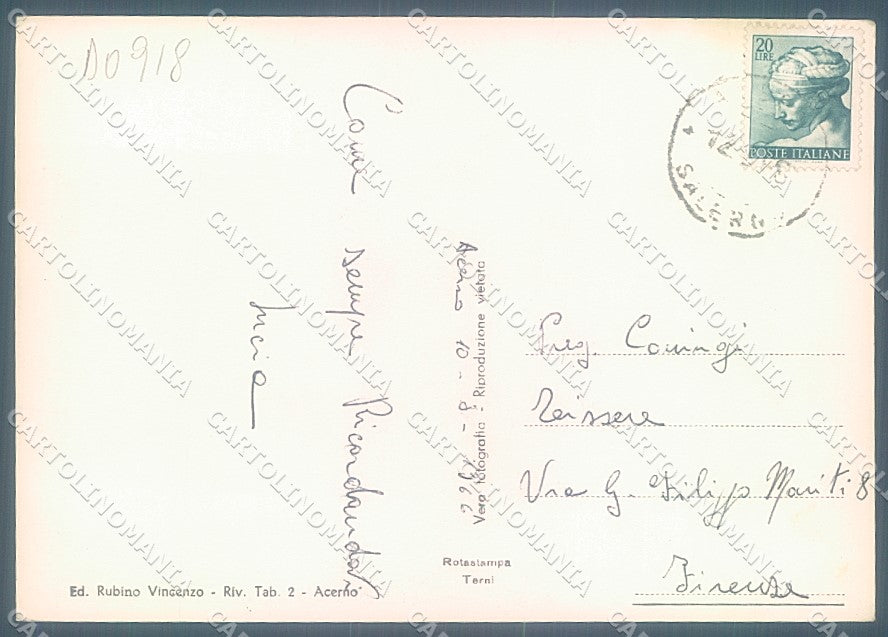 DO918
20
LIRE
POSTE ITALIANE
SALERNO
Come sempre Ricordando
Lucia
Acerno 10-8-1966
Vera fotografia - Riproduzione vietata
Preg. Coniugi
Teissere
Via G. Filippo Mariti 8
Firenze
Rotastampa
Terni
Ed. Rubino Vincenzo - Riv. Tab. 2 - Acerno
CARTOLINOMANIA